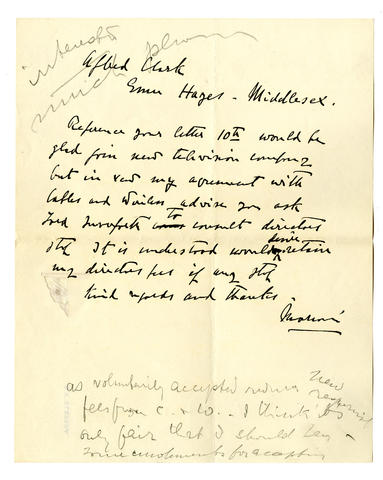 interests
much
Alfred Clark
Emui Hayes - Middlesex.
Reference your letter 10th would be
glad join new television company
but in view my agreement with
Cables and Wireless advise you ask
Lord Inverforth to consult directors
stop It is understood would desire retain
my directors fees if any stop
Kind regards and thanks.
Marconi
as voluntarily accepted new
fees from C. & W. - I think it is
only fair that I should
some emoluments for accepting